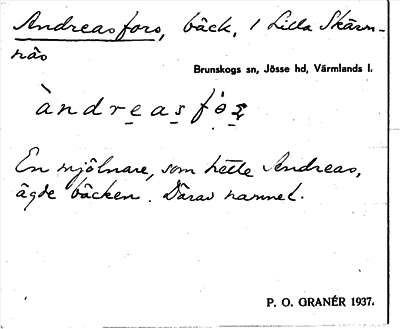 Andreasfors, bäck, i Lilla Skärm-
näs
Brunskogs sn, Jösse hd, Värmlands l.
àndreasfȯs̨
En mjölnare, som hette Andreas,
ägde bäcken. Därav namnet.
P. O. GRANÉR 1937.